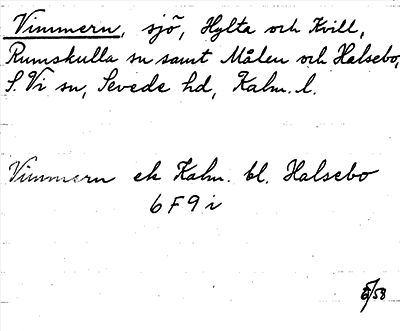 Vimmern, sjö, Hylta och Kvill,
Rumskulla sn samt Målen och Halsebo,
S. Vi sn, Sevede hd, Kalm. l.
Vimmern ek Kalm. bl. Halsebo
6F9i
/58